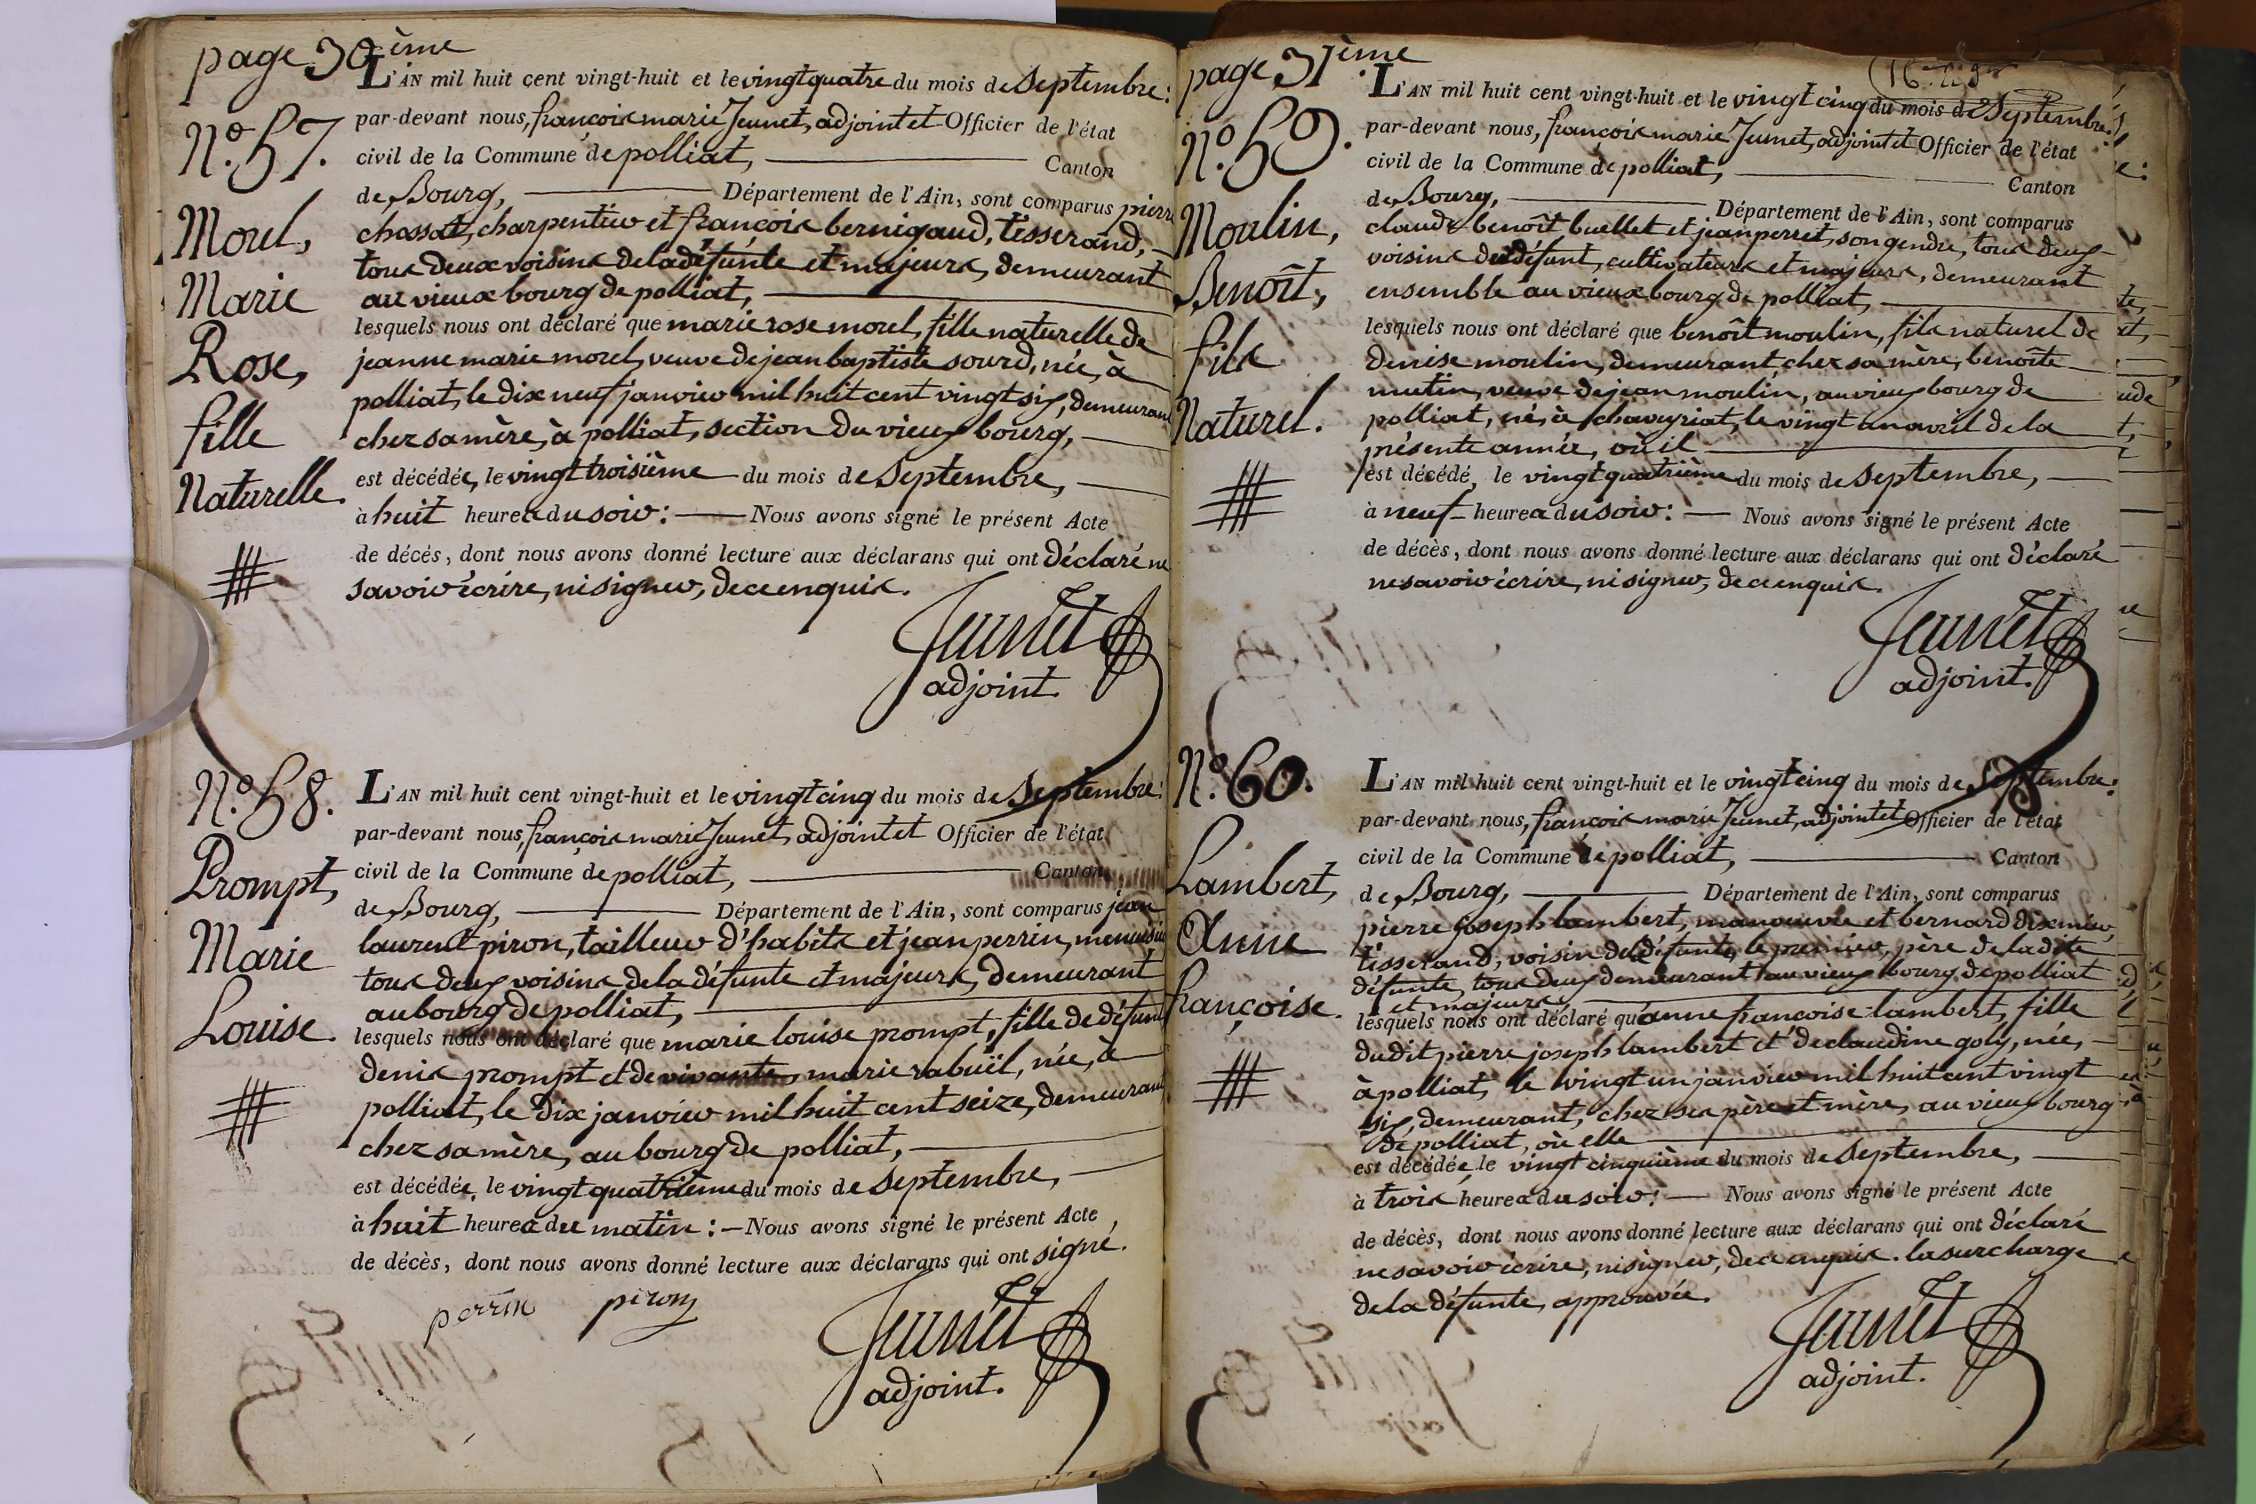 page 30ème
L'AN mil huit cent vingt-huit et le vingt quatre du mois de septembre:
par-devant nous, françois marie Jeunet, adjoint et Officier de l'état
N.º 57.
civil de la Commune de polliat, Canton
de Bourg, Département de l'Ain, sont comparus pierre
Morel,
chossat, charpentier et françois bernigaud, tisserand,
tous deux voisins de la défunte et majeurs, demeurant
Marie
au vieux bourg de polliat,
lesquels nous ont déclaré que marie rose morel, fille naturelle de
Rose,
jeanne marie morel, veuve de jean baptiste sourd, née, à
polliat, le dix neuf janvier mil huit cent vingt six, demeurant
fille
chez sa mère, à polliat, section du vieux bourg,
Naturelle.
est décédée, le vingt troisième du mois de septembre,
à huit heures du soir: Nous avons signé le présent Acte
de décès, dont nous avons donné lecture aux déclarans qui ont déclaré ne
savoir écrire, ni signer, de ce enquis.
Jeunet
adjoint.
N.º 58.
L'AN mil huit cent vingt-huit et le vingt cinq du mois de septembre:
par-devant nous, françois marie Jeunet, adjoint et Officier de l'état
Prompt,
civil de la Commune de polliat, Canton
de Bourg, Département de l'Ain, sont comparus jean
Marie
laurent piron, tailleur d'habits et jean perrin, menuisier
tous deux voisins de la défunte et majeurs, demeurant
Louise.
au bourg de polliat,
lesquels nous ont déclaré que marie louise prompt, fille de défunt
denis prompt et de vivante, marie rabuël, née, à
polliat, le dix janvier mil huit cent seize, demeurant
chez sa mère, au bourg de polliat,
est décédée, le vingt quatrième du mois de septembre,
à huit heures du matin: Nous avons signé le présent Acte
de décès, dont nous avons donné lecture aux déclarans qui ont signé.
perrin piron
Jeunet
adjoint.
page 31ème
L'AN mil huit cent vingt-huit et le vingt cinq du mois de septembre:
N.º 59.
par-devant nous, françois marie Jeunet, adjoint et Officier de l'état
civil de la Commune de polliat, Canton
de Bourg, Département de l'Ain, sont comparus
Moulin,
claude benoît buellet et jean perret, son gendre, tous deux
voisins du défunt, cultivateurs et majeurs, demeurant
Benoît,
ensemble au vieux bourg de polliat,
lesquels nous ont déclaré que benoît moulin, fils naturel de
fils
denise moulin, demeurant chez sa mère, benoîte
mutin, veuve de jean moulin, au vieux bourg de
Naturel.
polliat, né, à chaveyriat, le vingt un avril de la
présente année, où il
est décédé, le vingt quatrième du mois de septembre,
à neuf heures du soir: Nous avons signé le présent Acte
de décès, dont nous avons donné lecture aux déclarans qui ont déclaré
ne savoir écrire, ni signer, de ce enquis.
Jeunet
adjoint.
N.º 60.
L'AN mil huit cent vingt-huit et le vingt cinq du mois de septembre:
par-devant nous, françois marie Jeunet, adjoint et Officier de l'état
civil de la Commune de polliat, Canton
Lambert,
de Bourg, Département de l'Ain, sont comparus
pierre joseph lambert, manœuvre et bernard
Anne
tisserand, voisin de la défunte, le premier, père de la dite
défunte, tous deux demeurant au vieux bourg de polliat
françoise.
et majeurs,
lesquels nous ont déclaré qu'anne françoise lambert, fille
dudit pierre joseph lambert et de claudine goly, née,
à polliat, le vingt un janvier mil huit cent vingt
six, demeurant, chez ses père et mère, au vieux bourg
de polliat, où elle
est décédée, le vingt cinquième du mois de septembre,
à trois heures du soir: Nous avons signé le présent Acte
de décès, dont nous avons donné lecture aux déclarans qui ont déclaré
ne savoir écrire, ni signer, de ce enquis. la surcharge
de la défunte, approuvée.
Jeunet
adjoint.